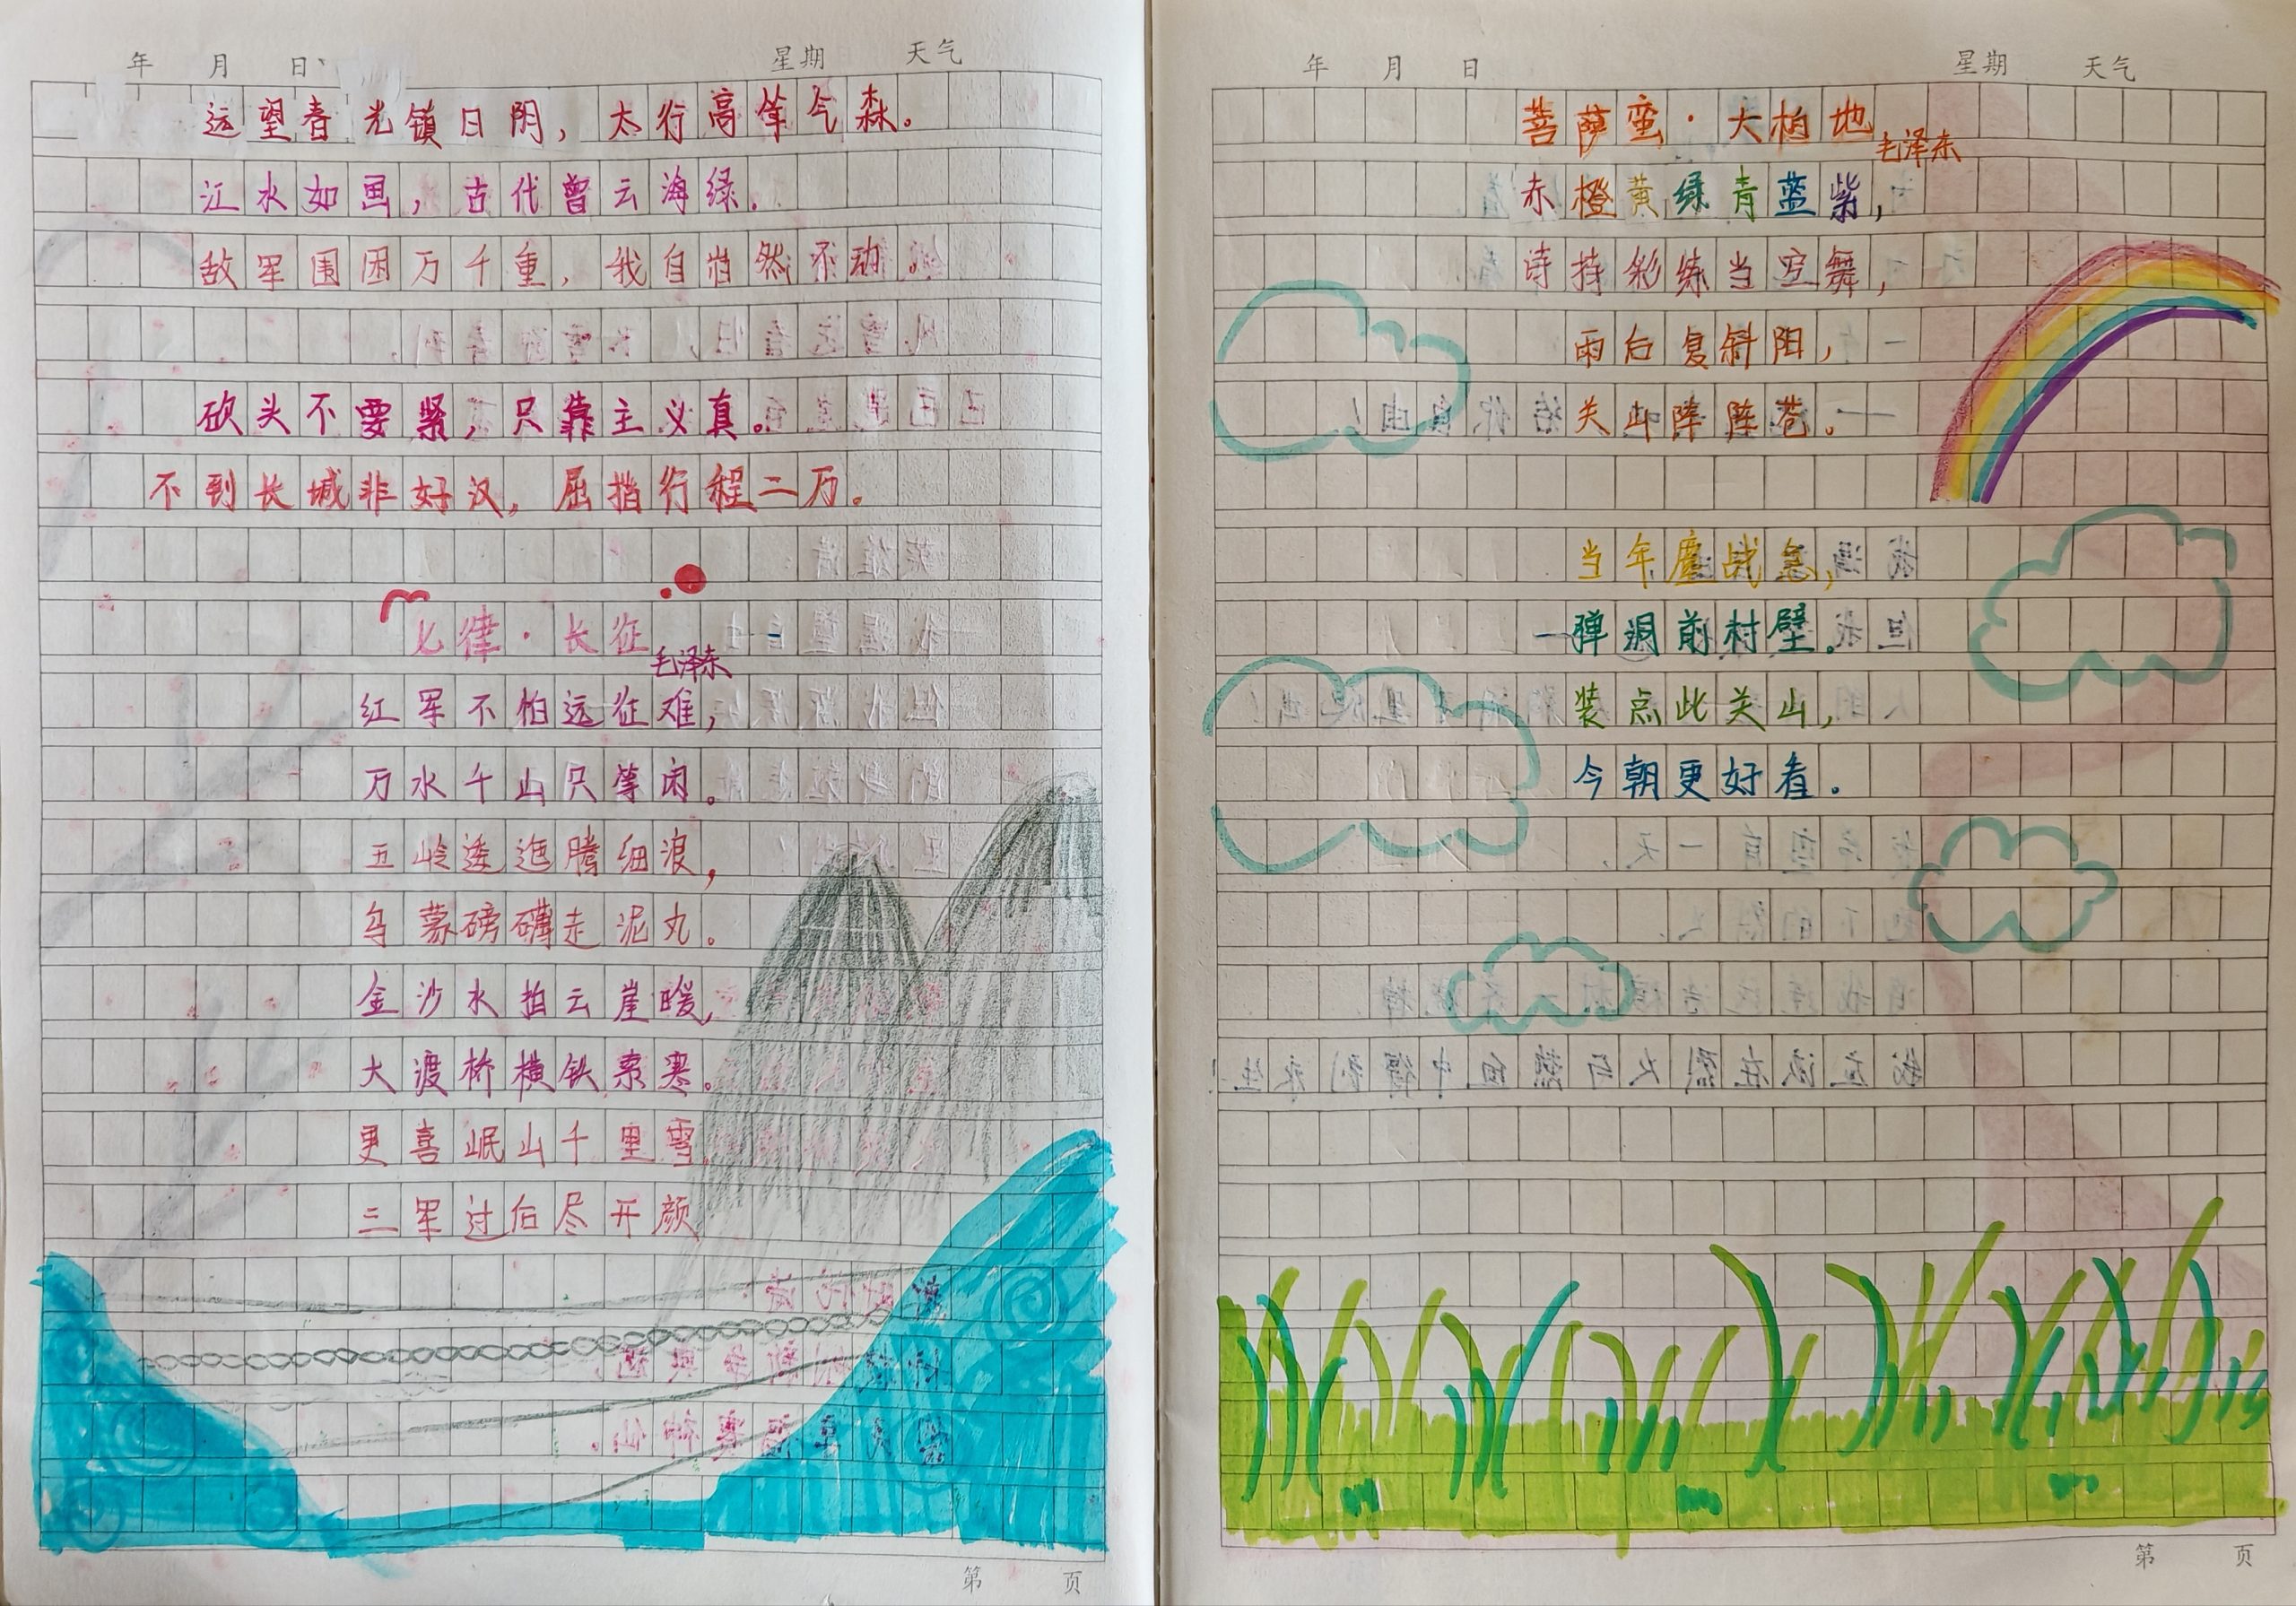 年 月 日 星期 天气
远望春光镇日阴，太行高耸气森。
江水如画，古代曾云海绿。
敌军围困万千重，我自岿然不动。
砍头不要紧，只靠主义真。
不到长城非好汉，屈指行程二万。
七律·长征
毛泽东
红军不怕远征难，
万水千山只等闲。
五岭逶迤腾细浪，
乌蒙磅礴走泥丸。
金沙水拍云崖暖，
大渡桥横铁索寒。
更喜岷山千里雪，
三军过后尽开颜
第 页
年 月 日 星期 天气
菩萨蛮·大柏地
毛泽东
赤橙黄绿青蓝紫，
诗持彩练当空舞，
雨后复斜阳，
关山阵阵苍。
当年鏖战急，
弹洞前村壁。
装点此关山，
今朝更好看。
第 页